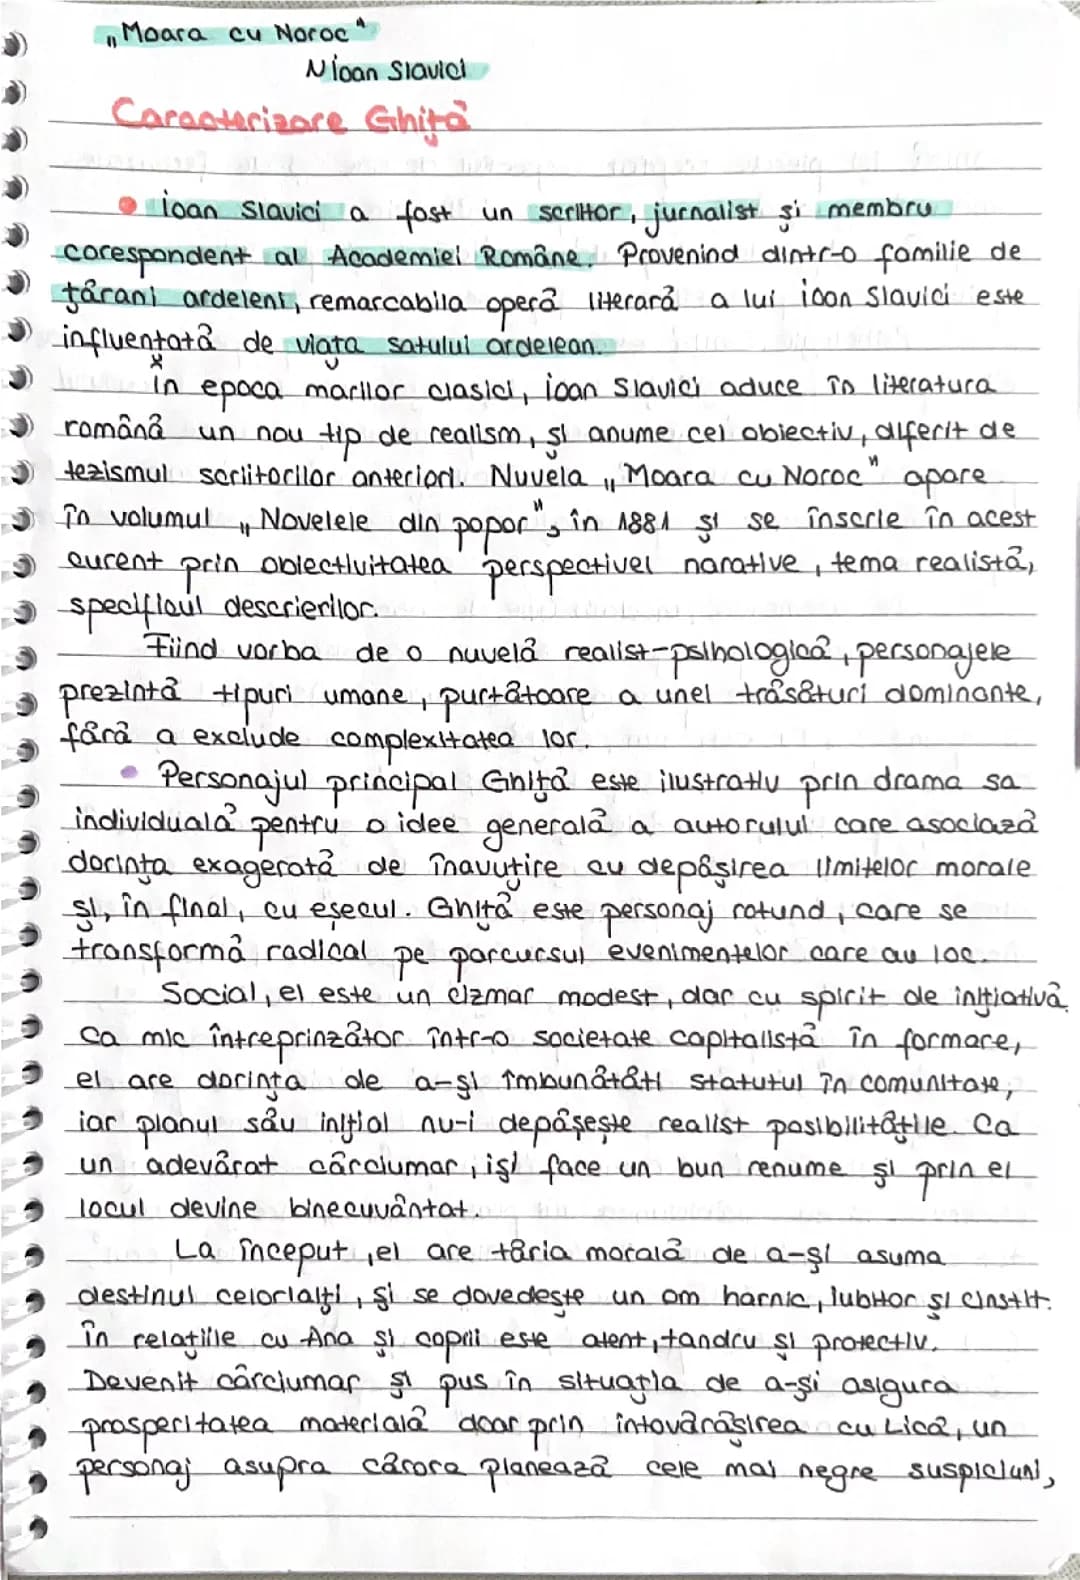 „Moara cu Noroc"
Nioan Slavici
Caracterizare Ghiță
• ioan Slavici a fost un scriitor, jurnalist și membru
corespondent al Academiei Române. Provenind dintr-o familie de
țărani ardeleni, remarcabila operă literară a lui ioan Slavici este
influențată de viața satului ardelean.
x
În epoca marilor clasici, ioan Slavici aduce în literatura
română un nou tip de realism, și anume cel obiectiv, diferit de
tezismul scriitorilor anteriori. Nuvela „Moara cu Noroc" apare
în volumul „Novelele din popor", în 1881 și se înscrie în acest
curent prin obiectivitatea perspectivei narative, tema realistă,
specificul descrierilor.
Fiind vorba de o nuvelă realist-psihologică, personajele
prezintă tipuri umane, purtătoare a unei trăsături dominante,
fără a exclude complexitatea lor.
• Personajul principal Ghiță este ilustrativ prin drama sa
individuală pentru o idee generală a autorului care asociază
dorința exagerată de înavuțire cu depășirea limitelor morale
și, în final, cu eșecul. Ghiță este personaj rotund, care se
transformă radical pe parcursul evenimentelor care au loc.
Social, el este un cizmar modest, dar cu spirit de inițiativă
Ca mic întreprinzător într-o societate capitalistă în formare,
el are dorința de a-și îmbunătăți statutul în comunitate,
iar planul său inițial nu-i depășește realist posibilitățile. Ca
un adevărat cârciumar, iși face un bun renume și prin el
locul devine binecuvântat.
La început, el are tăria morală de a-și asuma
destinul celorlalți, și se dovedește un om harnic, iubitor și cinstit.
în relațiile cu Ana și copiii este atent, tandru și protectiv.
Devenit cârciumar și pus în situația de a-și asigura
prosperitatea materială doar prin întovărășirea cu Lică, un
personaj asupra cărora planează cele mai negre suspiciuni,